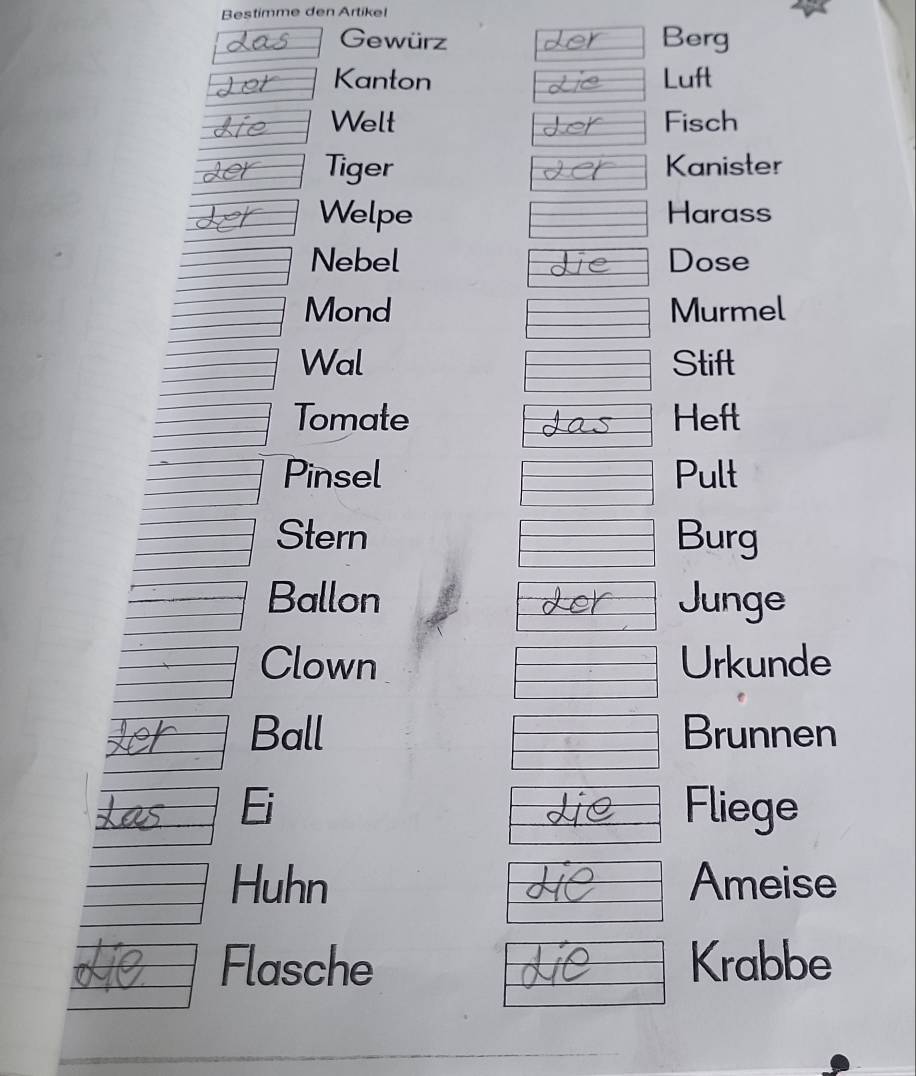 Bestimme den Artikel
das Gewürz
der Kanton
die Welt
der Tiger
der Welpe
Nebel
Mond
Wal
Tomate
Pinsel
Stern
Ballon
Clown
der Ball
das Ei
Huhn
die Flasche
der Berg
die Luft
der Fisch
der Kanister
Harass
die Dose
Murmel
Stift
das Heft
Pult
Burg
der Junge
Urkunde
Brunnen
die Fliege
die Ameise
die Krabbe